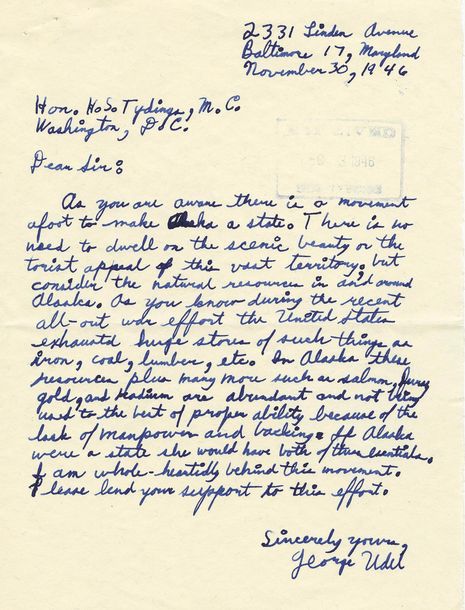 2331 Linden Avenue
Baltimore 17, Maryland
November 30, 1946
Hon. H.S. Tydings, M.C.
Washington, D.C.
RECEIVED
1946
Dear Sir:
As you are aware there is a movement
afoot to make Alaska a state. There is no
need to dwell on the scenic beauty or the
torist appeal of this vast territory, but
consider the natural resources in and around
Alaska. As you know during the recent
all-out war effort the United States
exhausted huge stores of such things as
iron, coal, lumber, etc. In Alaska these
resources plus many more such as salmon, furs,
gold, and radium are abundant and not being
used to the best of proper ability because of the
lack of manpower and backing. If Alaska
were a state she would have both of these essentials.
I am whole-heartidly behind this movement.
Please lend your support to this effort.
Sincerely yours,
George Udel